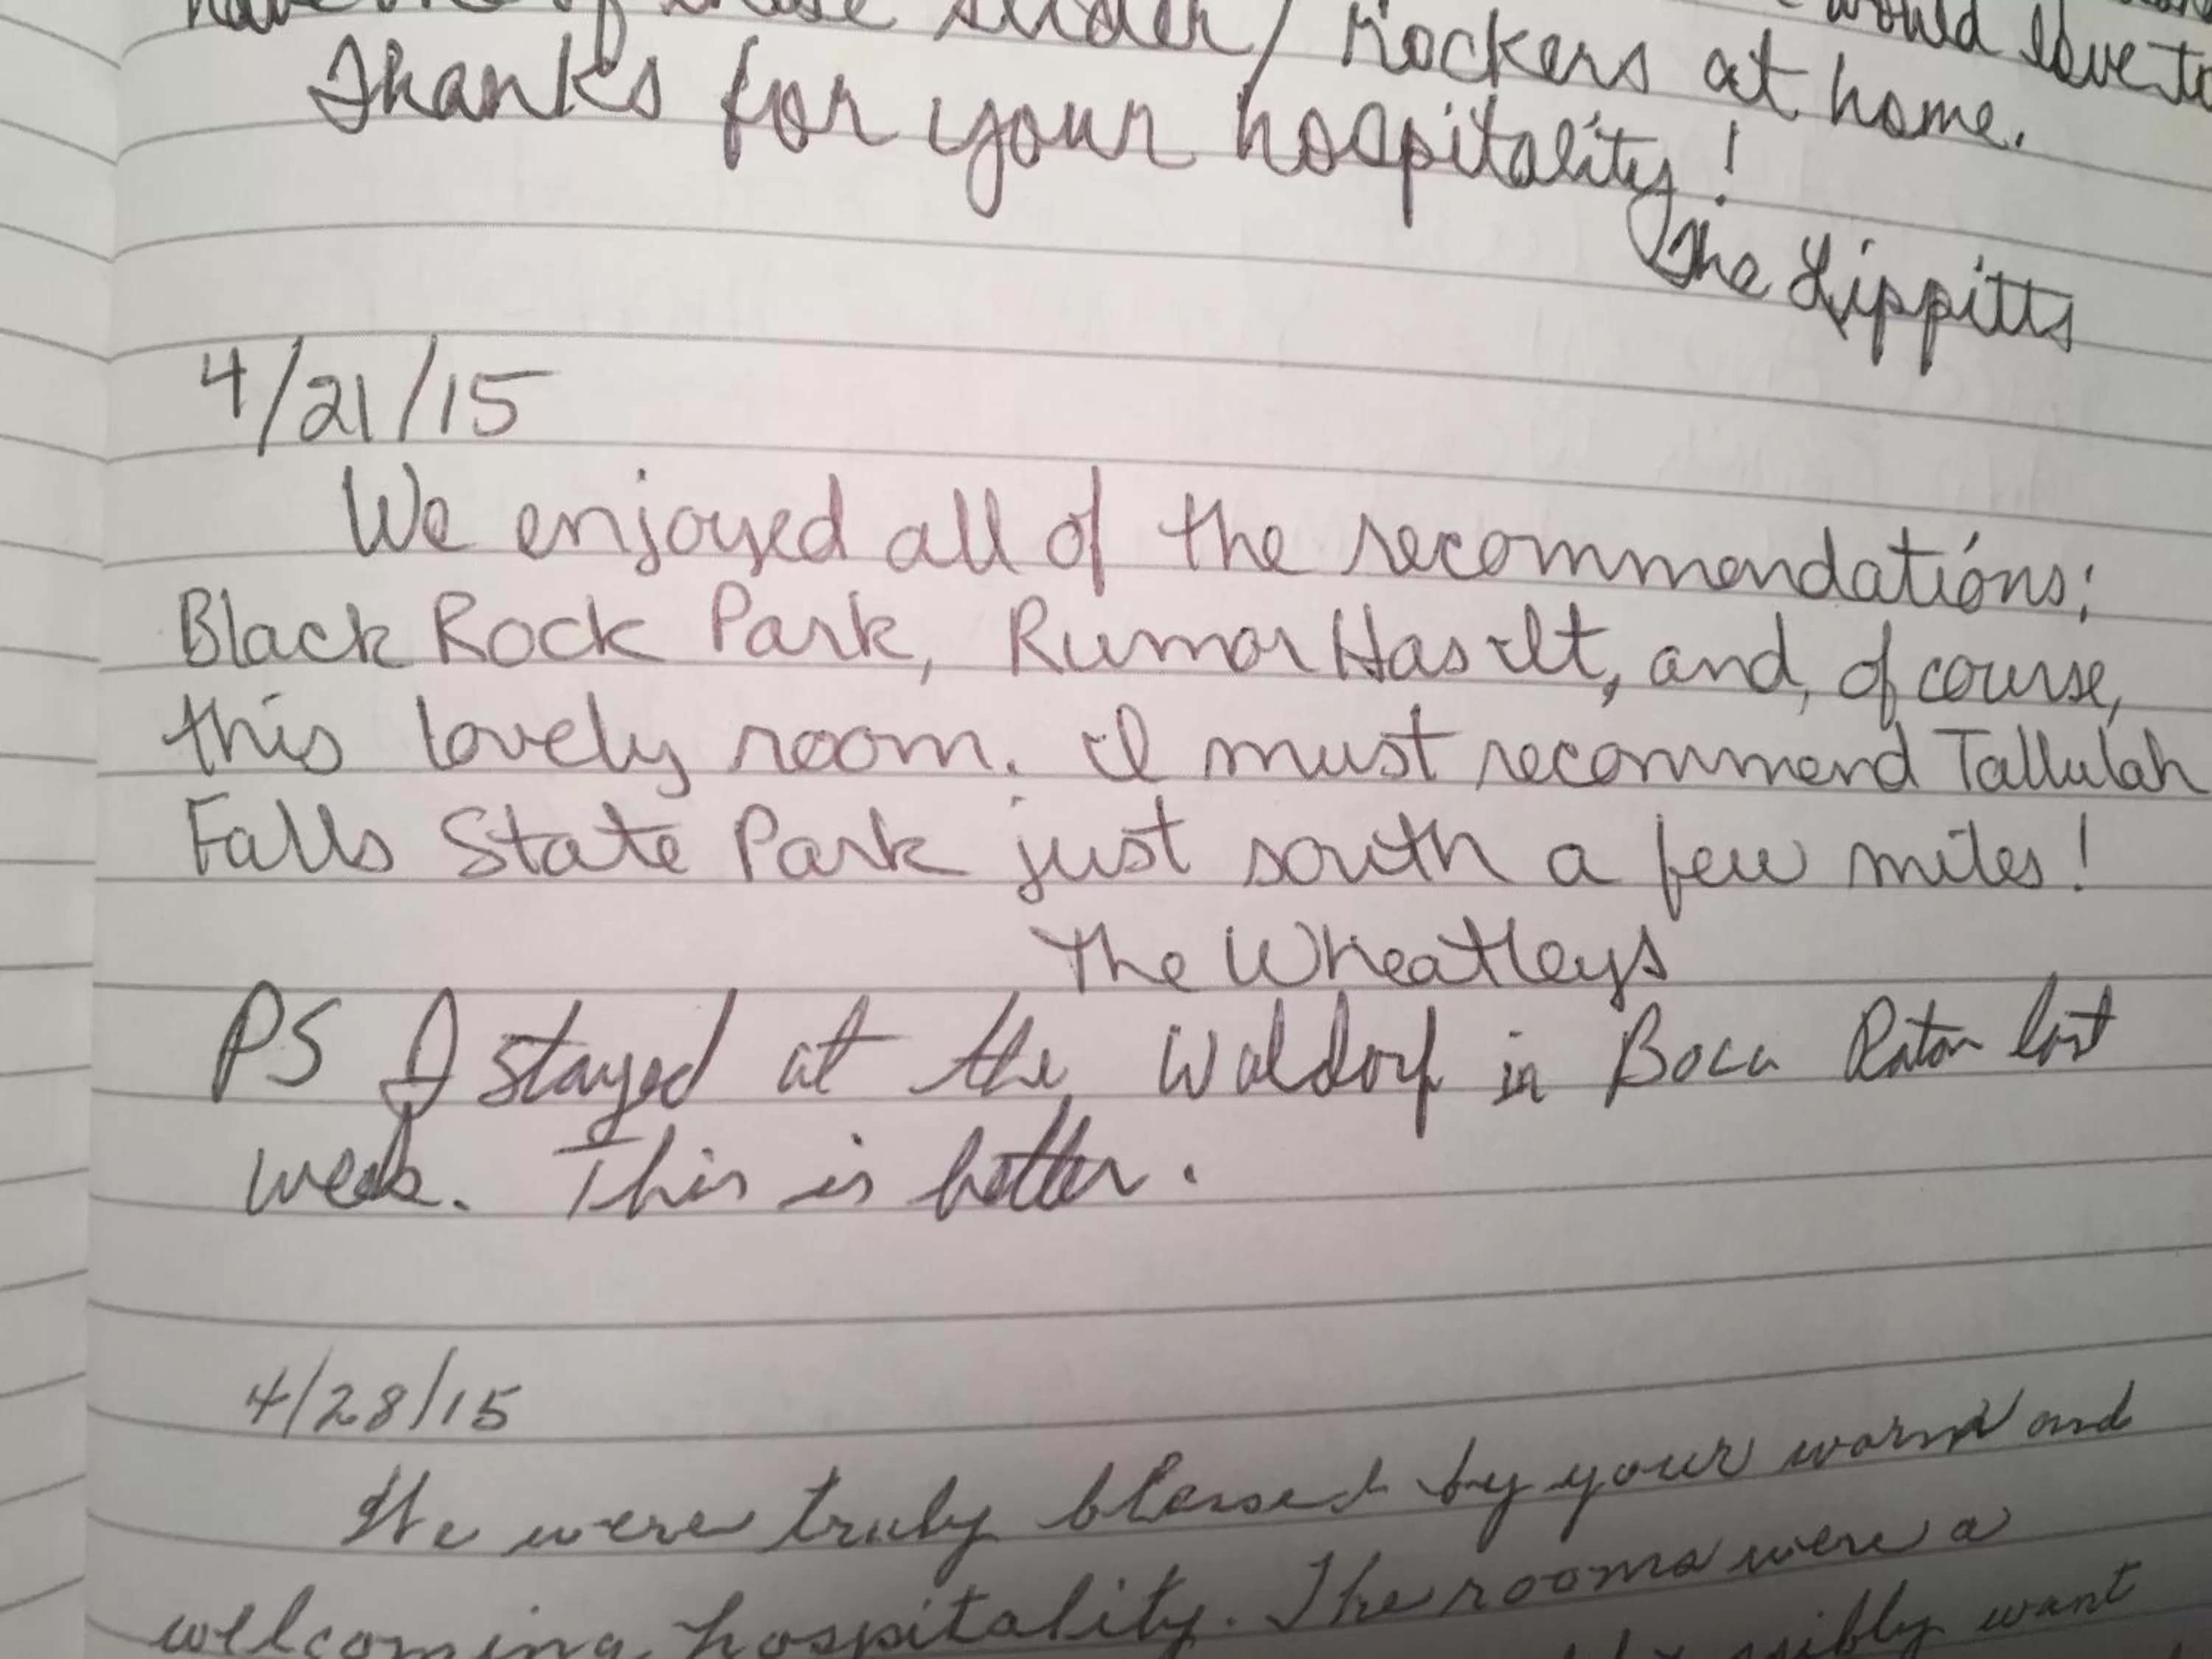 would love to
have one of these slider/rockers at home.
Thanks for your hospitality!
The Lippitts
4/21/15
We enjoyed all of the recommendations:
Black Rock Park, Rumor Has It, and, of course,
this lovely room. I must recommend Tallulah
Falls State Park just south a few miles!
The Wheatleys
PS I stayed at the Waldorf in Boca Raton last
week. This is better.
4/28/15
We were truly blessed by your warm and
welcoming hospitality. The rooms were a
want